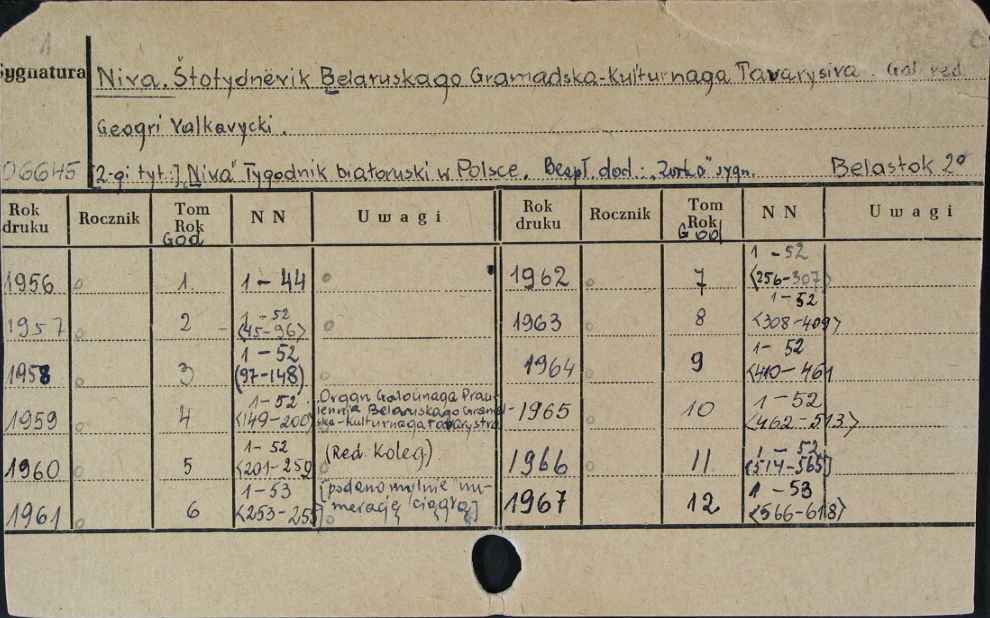 Sygnatura
Niva. Štotydnëvik Belaruskago Gramadska-Kulturnaga Tavarystva. Gal. red.
Georgi Valkavycki.
06645 [2-gi tyt.:] "Niva" Tygodnik białoruski w Polsce. Bezpł. dod.: "Zorka" sygn. Belastok 2°
Rok druku Rocznik Tom Rok God NN Uwagi Rok druku Rocznik Tom Rok God NN Uwagi
1956 1 1-44 1962 7 1-52 <256-307>
1957 2 1-52 <45-96> 1963 8 1-52 <308-409>
1958 3 1-52 (97-148) 1964 9 1-52 <410-461
1959 4 1-52 <149-200> Organ Galoŭnaga Praulennja Belaruskago Gramadska-kulturnaga tavarystva 1965 10 1-52 <462-513>
1960 5 1-52 <201-252 (Red. Koleg) 1966 11 1-52 <514-565]
1961 6 1-53 <253-255 [podano mylnie numerację ciągłą] 1967 12 1-53 <566-618>